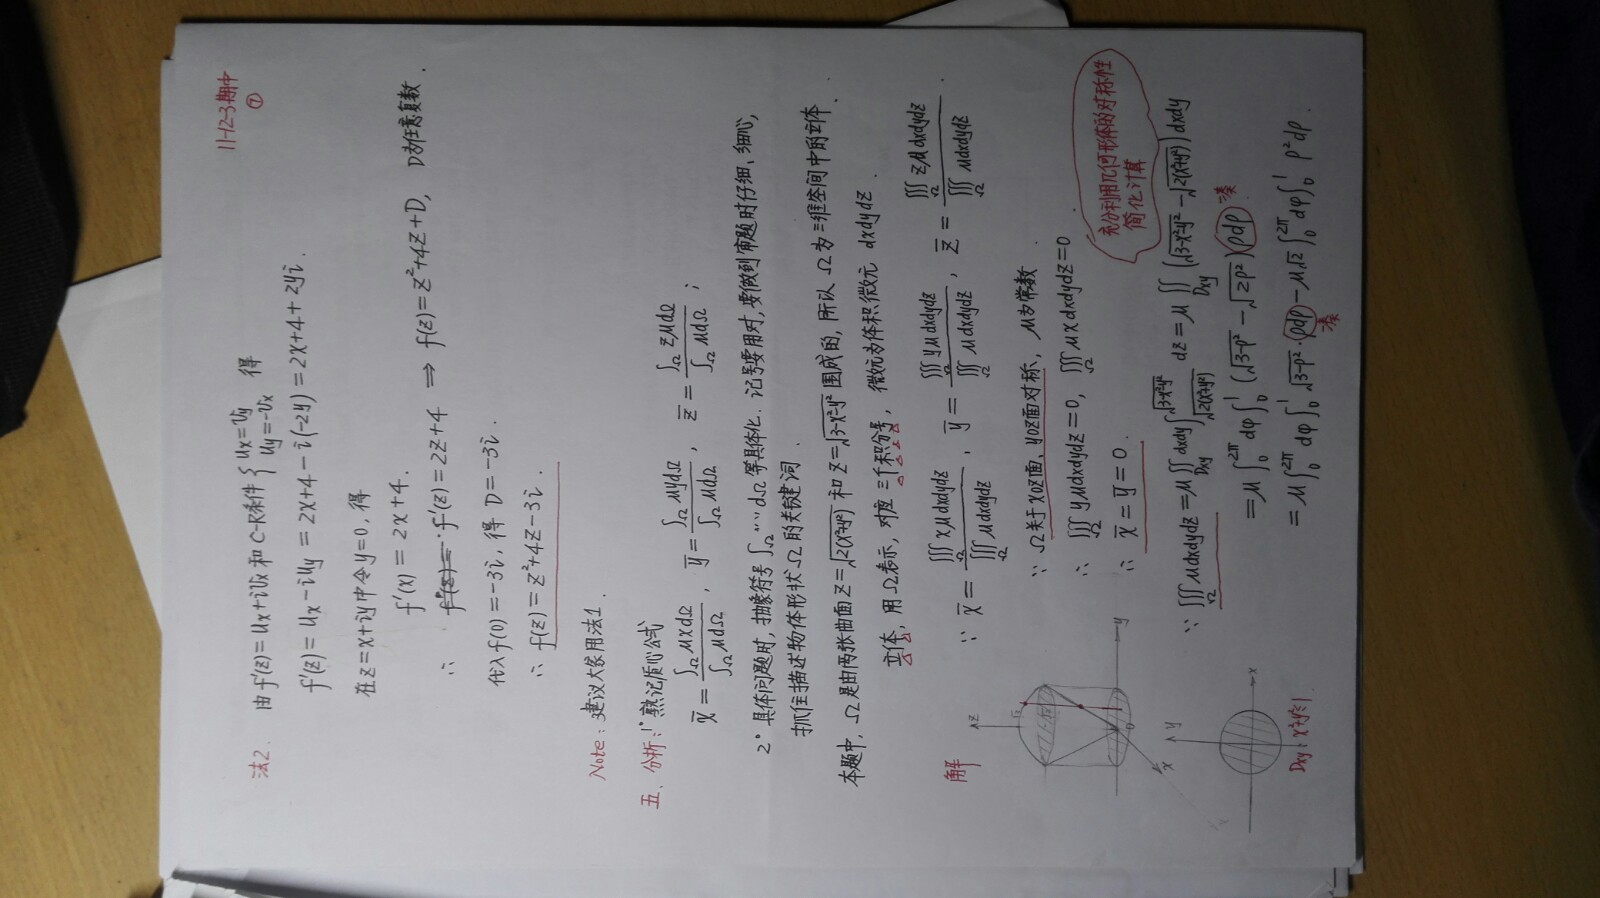 11-12-3期中
⑦
法2. 由f'(z)=Ux+iVx和C-R条件{Ux=Vy Uy=-Vx 得
f'(z)=Ux-iUy=2x+4-i(-2y)=2x+4+2yi.
在z=x+iy中令y=0,得
f'(x)=2x+4.
∴ f'(z)=2z+4 ⇒ f(z)=z²+4z+D, D为任意复数.
代入f(0)=-3i,得D=-3i.
∴ f(z)=z²+4z-3i.
Note:建议大家用法1.
五、分析:1°熟记质心公式
x̄=∫Ω μxdΩ/∫Ω μdΩ, ȳ=∫Ω μydΩ/∫Ω μdΩ, z̄=∫Ω zμdΩ/∫Ω μdΩ;
2°具体问题时,抽象符号∫Ω…dΩ等具体化.记号要用对,要做到审题时仔细、细心,
抓住描述物体形状Ω的关键词.
本题中,Ω是由两张曲面z=√2(x²+y²)和z=√3-x²-y²围成的,所以Ω为三维空间中的立体.
立体,用Ω表示,对应三个积分号,微元为体积微元dxdydz.
解 ∵ x̄=∭Ω xμdxdydz/∭Ω μdxdydz, ȳ=∭Ω yμdxdydz/∭Ω μdxdydz, z̄=∭Ω zμdxdydz/∭Ω μdxdydz
∵ Ω关于xoz面、yoz面对称,μ为常数.
∴ ∭Ω yμdxdydz=0, ∭Ω μxdxdydz=0
∴ x̄=ȳ=0.
充分利用几何形体的对称性
简化计算
∵ ∭Ω μdxdydz=μ∬Dxy dxdy∫√2(x²+y²)^√3-x²-y² dz=μ∬Dxy(√3-x²-y²-√2(x²+y²))dxdy
=μ∫0^2π dφ∫0^1(√3-ρ²-√2ρ²)ρdρ 凑
=μ∫0^2π dφ∫0^1 √3-ρ²·ρdρ-μ√2∫0^2π dφ∫0^1 ρ²dρ
凑
z
y
x
0
y
x
Dxy:x²+y²≤1